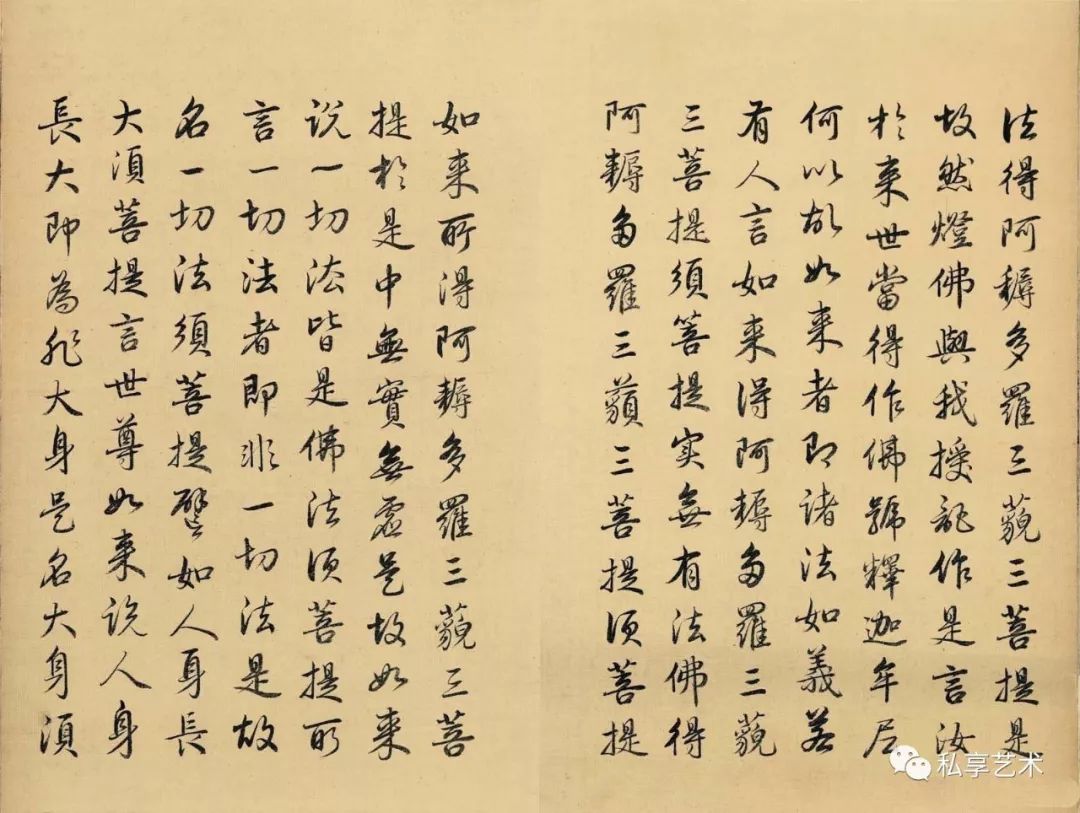 法得阿耨多羅三藐三菩提是
故然燈佛與我授記作是言汝
於来世當得作佛號釋迦牟尼
何以故如来者即諸法如義若
有人言如来得阿耨多羅三藐
三菩提須菩提实無有法佛得
阿耨多羅三藐三菩提須菩提
如来所得阿耨多羅三藐三菩
提於是中無實無虛是故如来
說一切法皆是佛法須菩提所
言一切法者即非一切法是故
名一切法須菩提譬如人身長
大須菩提言世尊如来說人身
長大即為非大身是名大身須
私享艺术